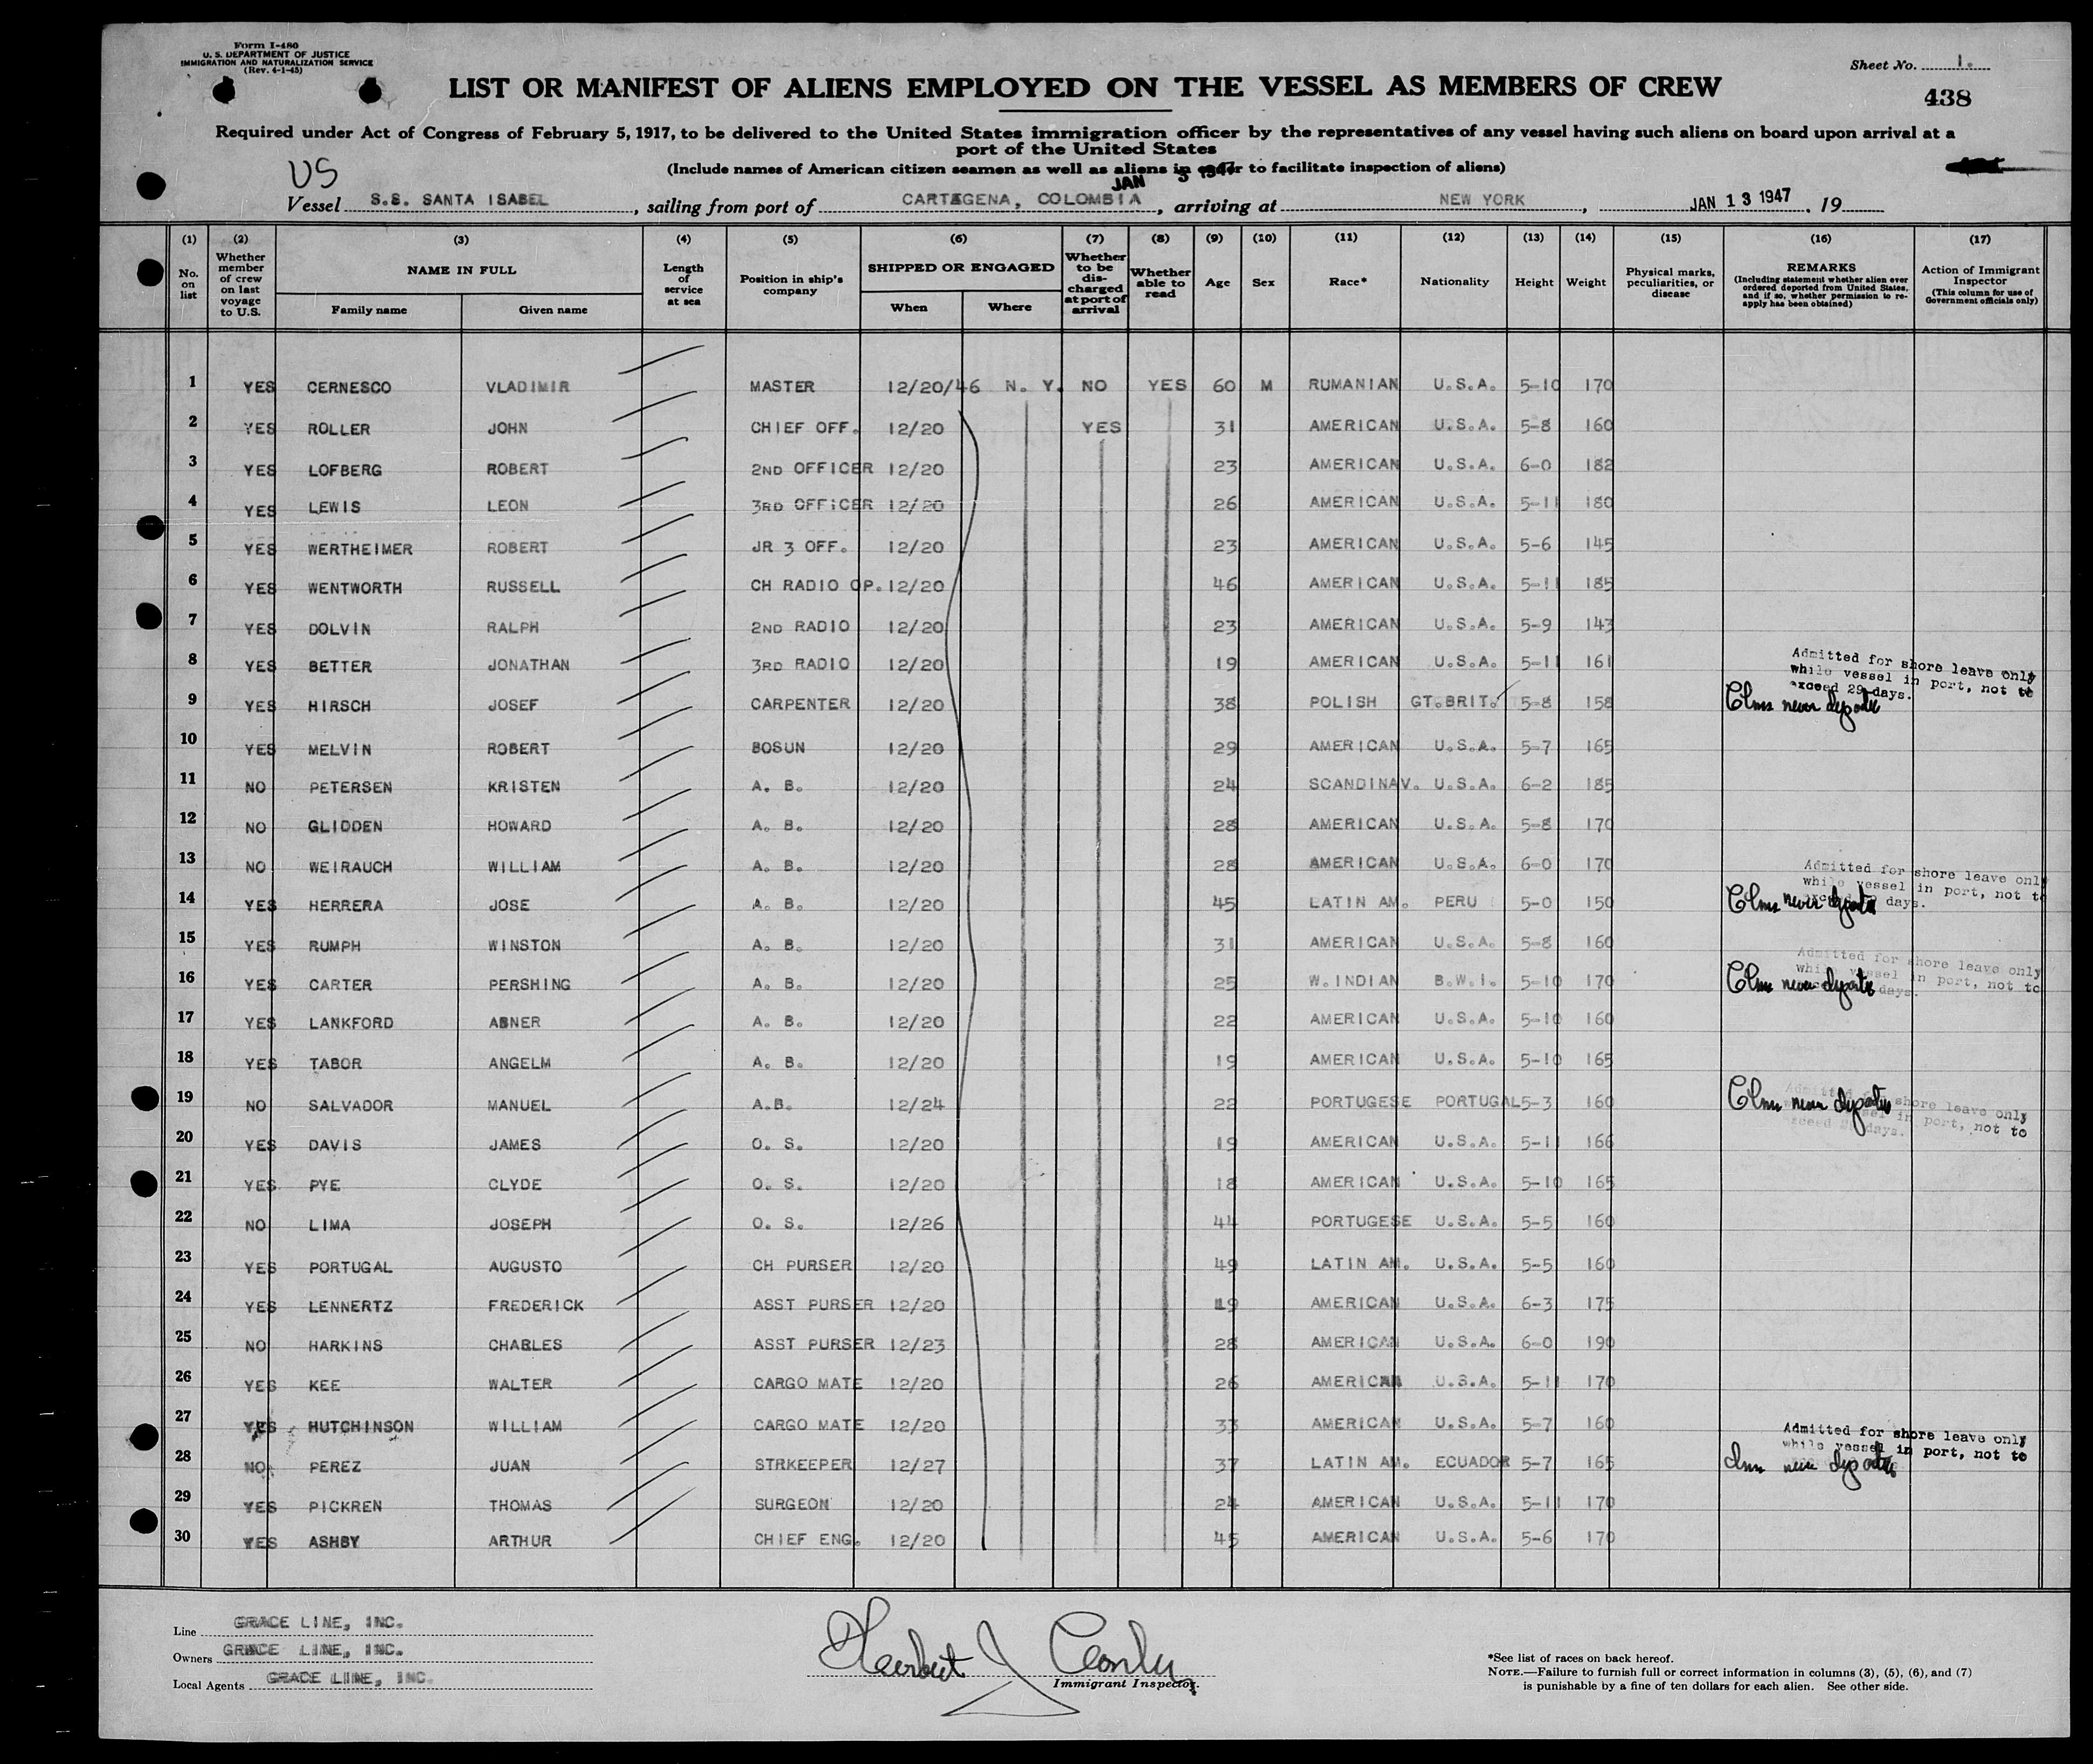 Form I-480
U. S. DEPARTMENT OF JUSTICE
IMMIGRATION AND NATURALIZATION SERVICE
(Rev. 4-1-45)
Sheet No. 1.
LIST OR MANIFEST OF ALIENS EMPLOYED ON THE VESSEL AS MEMBERS OF CREW
438
Required under Act of Congress of February 5, 1917, to be delivered to the United States immigration officer by the representatives of any vessel having such aliens on board upon arrival at a
port of the United States
(Include names of American citizen seamen as well as aliens in order to facilitate inspection of aliens)
US
JAN 3 1947
Vessel S.S. SANTA ISABEL, sailing from port of CARTAGENA, COLOMBIA, arriving at NEW YORK, JAN 13 1947, 19
(1) (2) (3) (4) (5) (6) (7) (8) (9) (10) (11) (12) (13) (14) (15) (16) (17)
No. on list
Whether member of crew on last voyage to U.S.
NAME IN FULL
Family name
Given name
Length of service at sea
Position in ship's company
SHIPPED OR ENGAGED
When
Where
Whether to be discharged at port of arrival
Whether able to read
Age
Sex
Race*
Nationality
Height
Weight
Physical marks, peculiarities, or disease
REMARKS
(Including statement whether alien ever ordered deported from United States, and if so, whether permission to reapply has been obtained)
Action of Immigrant Inspector
(This column for use of Government officials only)
1 YES CERNESCO VLADIMIR MASTER 12/20/46 N. Y. NO YES 60 M RUMANIAN U.S.A. 5-10 170
2 YES ROLLER JOHN CHIEF OFF. 12/20 YES 31 AMERICAN U.S.A. 5-8 160
3 YES LOFBERG ROBERT 2ND OFFICER 12/20 23 AMERICAN U.S.A. 6-0 182
4 YES LEWIS LEON 3RD OFFICER 12/20 26 AMERICAN U.S.A. 5-11 180
5 YES WERTHEIMER ROBERT JR 3 OFF. 12/20 23 AMERICAN U.S.A. 5-6 145
6 YES WENTWORTH RUSSELL CH RADIO OP. 12/20 46 AMERICAN U.S.A. 5-11 185
7 YES DOLVIN RALPH 2ND RADIO 12/20 23 AMERICAN U.S.A. 5-9 143
8 YES BETTER JONATHAN 3RD RADIO 12/20 19 AMERICAN U.S.A. 5-11 161
Admitted for shore leave only
while vessel in port, not to
exceed 29 days.
9 YES HIRSCH JOSEF CARPENTER 12/20 38 POLISH GT.BRIT. 5-8 158 never deported
10 YES MELVIN ROBERT BOSUN 12/20 29 AMERICAN U.S.A. 5-7 165
11 NO PETERSEN KRISTEN A. B. 12/20 24 SCANDINAV. U.S.A. 6-2 185
12 NO GLIDDEN HOWARD A. B. 12/20 28 AMERICAN U.S.A. 5-8 170
13 NO WEIRAUCH WILLIAM A. B. 12/20 28 AMERICAN U.S.A. 6-0 170
Admitted for shore leave only
while vessel in port, not to
days.
14 YES HERRERA JOSE A. B. 12/20 45 LATIN AM. PERU 5-0 150 never deported
15 YES RUMPH WINSTON A. B. 12/20 31 AMERICAN U.S.A. 5-8 160
Admitted for shore leave only
while vessel in port, not to
days.
16 YES CARTER PERSHING A. B. 12/20 25 W.INDIAN B.W.I. 5-10 170 never deported
17 YES LANKFORD ABNER A. B. 12/20 22 AMERICAN U.S.A. 5-10 160
18 YES TABOR ANGELM A. B. 12/20 19 AMERICAN U.S.A. 5-10 165
Admitted shore leave only
in port, not to
exceed days.
19 NO SALVADOR MANUEL A.B. 12/24 22 PORTUGESE PORTUGAL 5-3 160 never deported
20 YES DAVIS JAMES O. S. 12/20 19 AMERICAN U.S.A. 5-11 166
21 YES PYE CLYDE O. S. 12/20 18 AMERICAN U.S.A. 5-10 165
22 NO LIMA JOSEPH O. S. 12/26 44 PORTUGESE U.S.A. 5-5 160
23 YES PORTUGAL AUGUSTO CH PURSER 12/20 49 LATIN AM. U.S.A. 5-5 160
24 YES LENNERTZ FREDERICK ASST PURSER 12/20 19 AMERICAN U.S.A. 6-3 175
25 NO HARKINS CHARLES ASST PURSER 12/23 28 AMERICAN U.S.A. 6-0 190
26 YES KEE WALTER CARGO MATE 12/20 26 AMERICAN U.S.A. 5-11 170
27 YES HUTCHINSON WILLIAM CARGO MATE 12/20 33 AMERICAN U.S.A. 5-7 160
Admitted for shore leave only
while vessel in port, not to
28 NO PEREZ JUAN STRKEEPER 12/27 37 LATIN AM. ECUADOR 5-7 165 never deported
29 YES PICKREN THOMAS SURGEON 12/20 24 AMERICAN U.S.A. 5-11 170
30 YES ASHBY ARTHUR CHIEF ENG. 12/20 45 AMERICAN U.S.A. 5-6 170
Line GRACE LINE, INC.
Owners GRACE LINE, INC.
Local Agents GRACE LINE, INC.
Herbert J
Immigrant Inspector.
*See list of races on back hereof.
NOTE.—Failure to furnish full or correct information in columns (3), (5), (6), and (7)
is punishable by a fine of ten dollars for each alien. See other side.